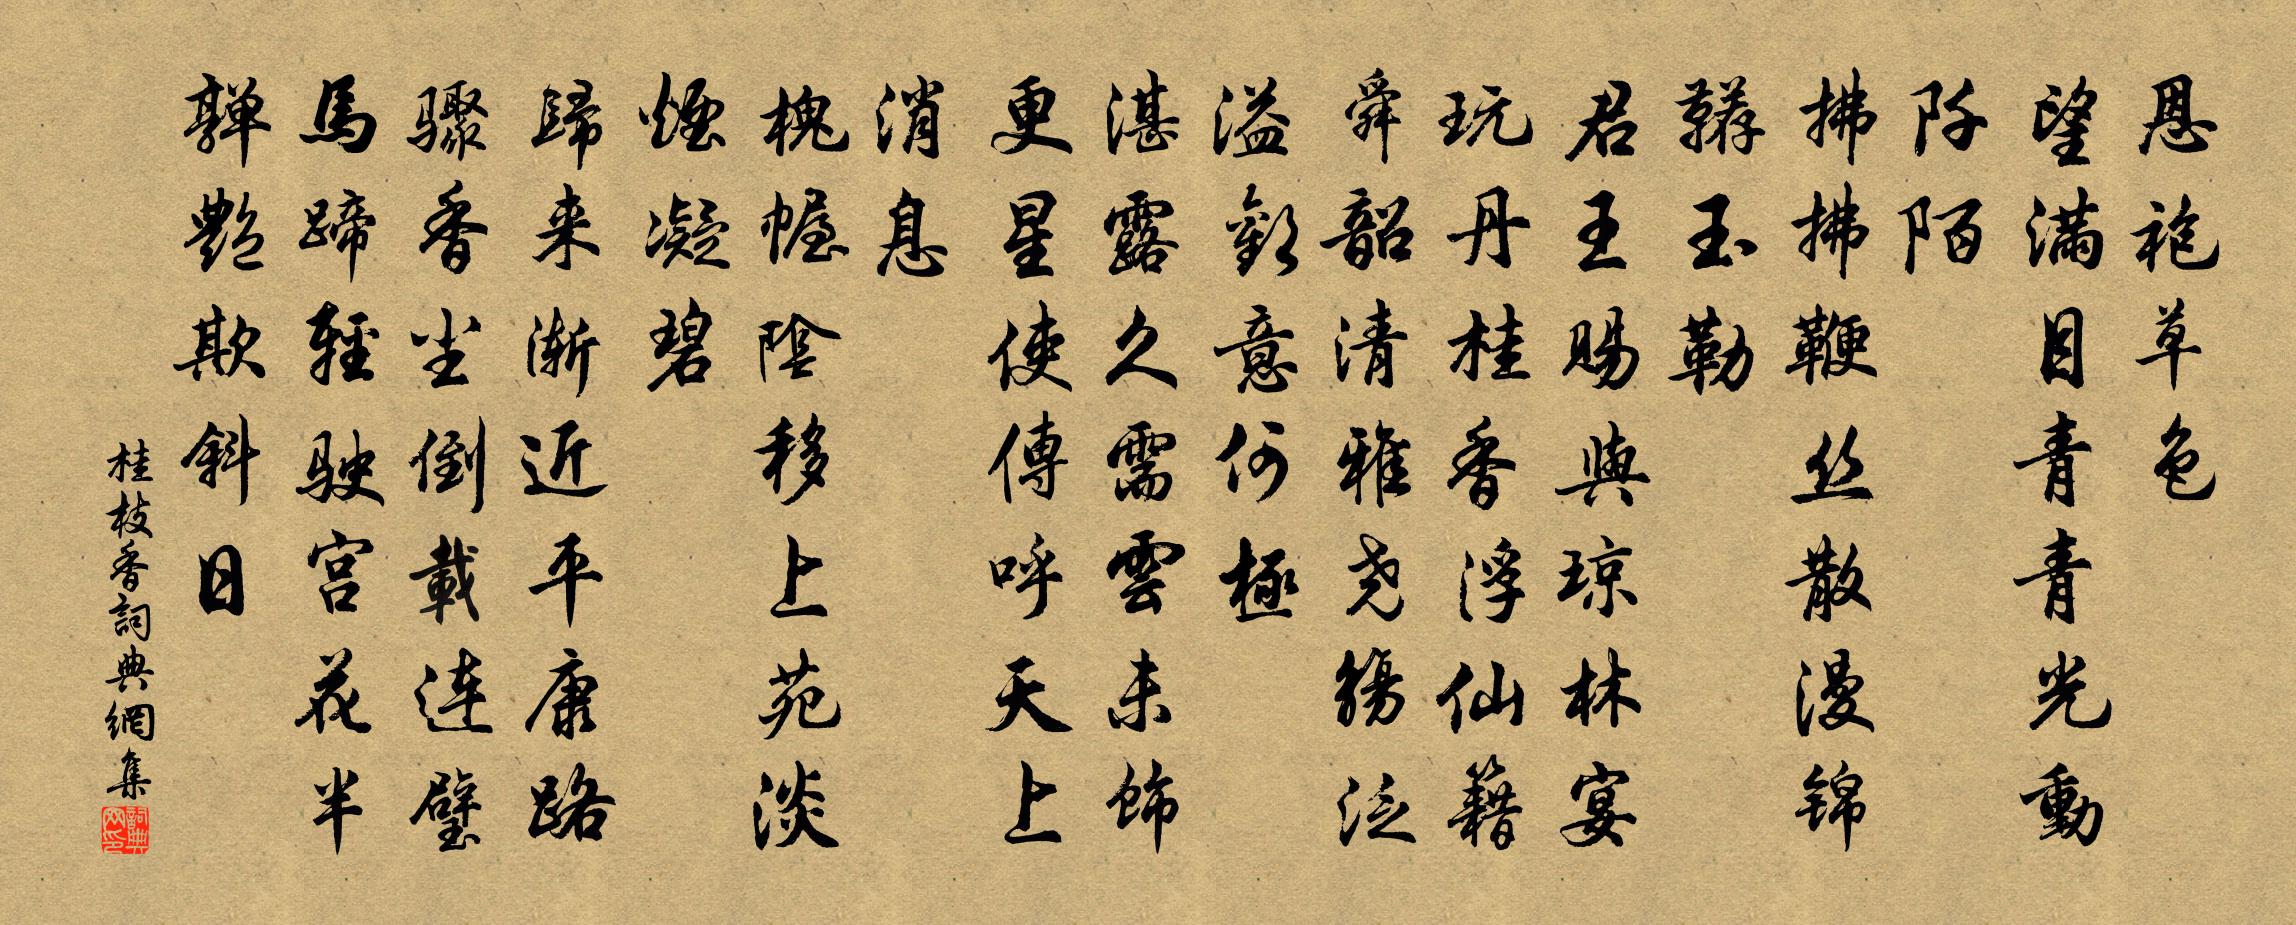 恩袍草色
望滿目青青光動
阡陌
拂拂鞭丝散漫锦
韉玉勒
君王赐與琼林宴
玩丹桂香浮仙籍
舜韶清雅尧觞泛
溢歡意何極
湛露久需雲未飾
更星使傳呼天上
消息
槐幄陰移上苑淡
煙凝碧
歸来渐近平康路
骤香尘倒載连璧
馬蹄輕駛宫花半
嚲艷欺斜日
桂枝香詞典網集
詞典网印